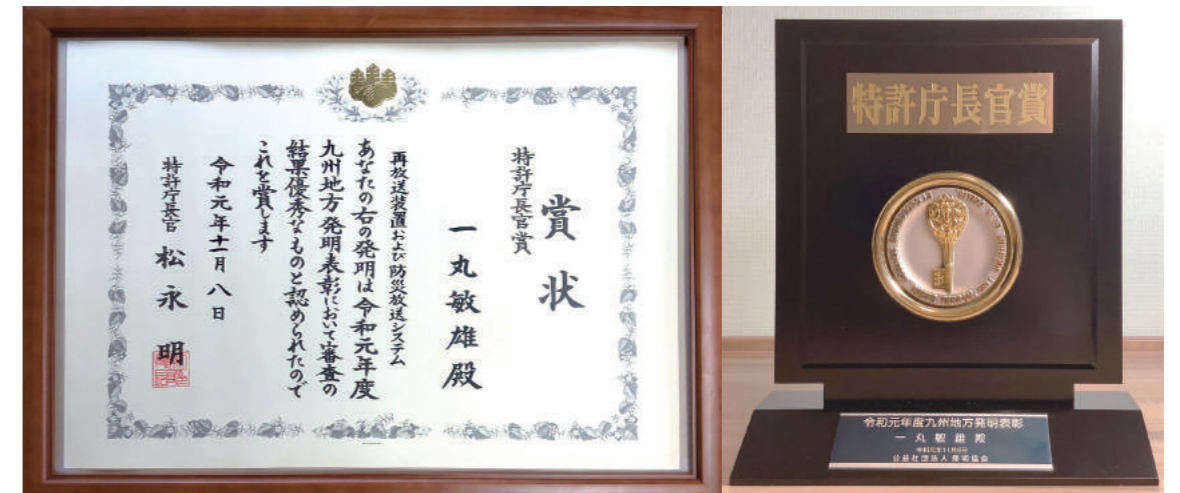 賞状
特許庁長官賞
一丸敏雄殿
再放送装置および防災放送システム
あなたの右の発明は令和元年度
九州地方発明表彰において審査の
結果優秀なものと認められたので
これを賞します
令和元年十一月八日
特許庁長官 松永明
特許庁長官賞
令和元年度九州地方発明表彰
一丸敏雄殿
令和元年11月8日
公益社団法人 発明協会